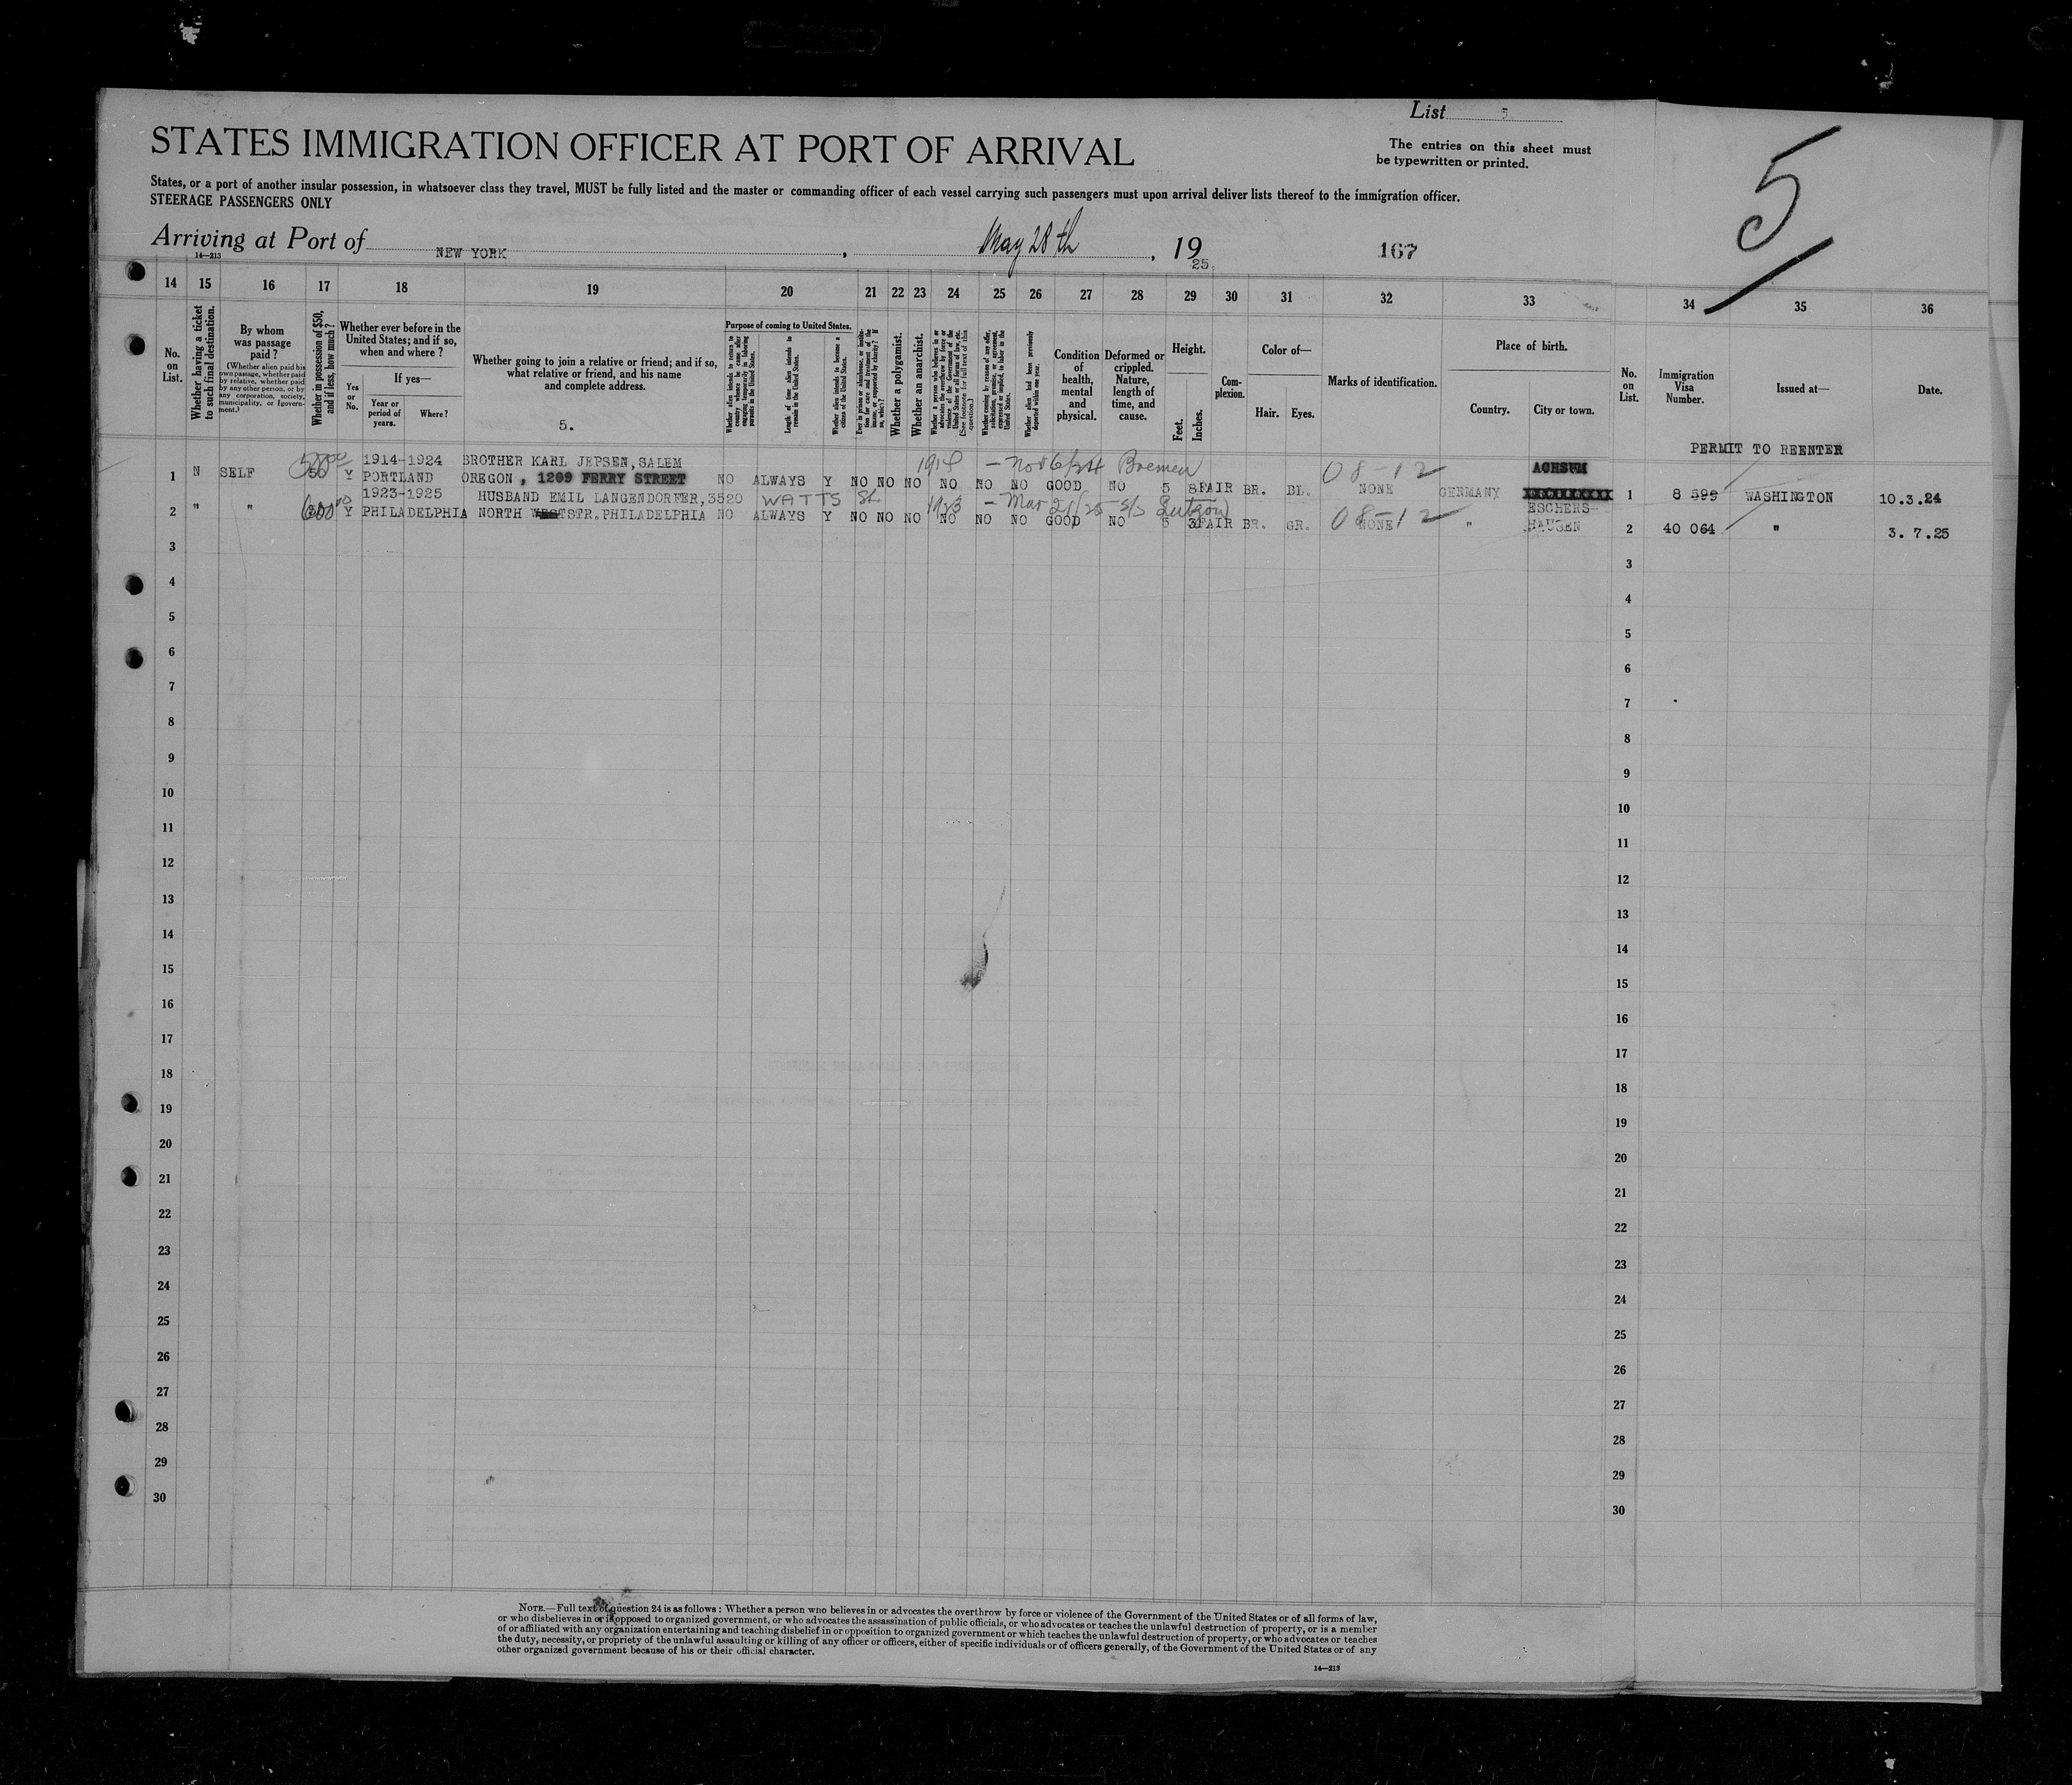 List 5.
STATES IMMIGRATION OFFICER AT PORT OF ARRIVAL
The entries on this sheet must
be typewritten or printed.
5
States, or a port of another insular possession, in whatsoever class they travel, MUST be fully listed and the master or commanding officer of each vessel carrying such passengers must upon arrival deliver lists thereof to the immigration officer.
STEERAGE PASSENGERS ONLY
Arriving at Port of NEW YORK, May 28th, 1925. 167
14—213
14 15 16 17 18 19 20 21 22 23 24 25 26 27 28 29 30 31 32 33 34 35 36
No. on List.
Whether having a ticket to such final destination.
By whom was passage paid?
(Whether alien paid his own passage, whether paid by relative, whether paid by any other person, or by any corporation, society, municipality, or government.)
Whether in possession of $50, and if less, how much?
Whether ever before in the United States; and if so, when and where?
Yes or No.
If yes—
Year or period of years.
Where?
Whether going to join a relative or friend; and if so, what relative or friend, and his name and complete address.
5.
Purpose of coming to United States.
Whether alien intends to return to country whence he came after engaging temporarily in laboring pursuits in the United States.
Length of time alien intends to remain in the United States.
Whether alien intends to become a citizen of the United States.
Ever in prison or almshouse, or institution for care and treatment of the insane, or supported by charity? If so, which?
Whether a polygamist.
Whether an anarchist.
Whether a person who believes in or advocates the overthrow by force or violence of the Government of the United States or all forms of law, etc. (See footnote for full text of this question.)
Whether coming by reason of any offer, solicitation, promise, or agreement, expressed or implied, to labor in the United States.
Whether alien had been previously deported within one year.
Condition of health, mental and physical.
Deformed or crippled. Nature, length of time, and cause.
Height.
Feet. Inches.
Complexion.
Color of—
Hair. Eyes.
Marks of identification.
Place of birth.
Country. City or town.
No. on List.
Immigration Visa Number.
Issued at—
Date.
PERMIT TO REENTER
1914-1924 BROTHER KARL JEPSEN, SALEM 1914 - Nov 6/24 Bremen 08-12 ACHSUM
1 N SELF 50 Y PORTLAND OREGON, 1209 FERRY STREET NO ALWAYS Y NO NO NO NO NO NO GOOD NO 5 8 FAIR BR. BL. NONE GERMANY 1 8 599 WASHINGTON 10.3.24
1923-1925 HUSBAND EMIL LANGENDORFER, 3520 WATTS St. 1923 - Mar 21/25 S/S 08-12 ESCHERS-
2 " " 600 Y PHILADELPHIA NORTH WEST STR. PHILADELPHIA NO ALWAYS Y NO NO NO NO NO NO GOOD NO 5 3 FAIR BR. GR. NONE " HAUSEN 2 40 064 " 3. 7.25
3 3
4 4
5 5
6 6
7 7
8 8
9 9
10 10
11 11
12 12
13 13
14 14
15 15
16 16
17 17
18 18
19 19
20 20
21 21
22 22
23 23
24 24
25 25
26 26
27 27
28 28
29 29
30 30
NOTE.—Full text of question 24 is as follows: Whether a person who believes in or advocates the overthrow by force or violence of the Government of the United States or of all forms of law,
or who disbelieves in or is opposed to organized government, or who advocates the assassination of public officials, or who advocates or teaches the unlawful destruction of property, or is a member
of or affiliated with any organization entertaining and teaching disbelief in or opposition to organized government or which teaches the unlawful destruction of property, or who advocates or teaches
the duty, necessity, or propriety of the unlawful assaulting or killing of any officer or officers, either of specific individuals or of officers generally, of the Government of the United States or of any
other organized government because of his or their official character.
14—213